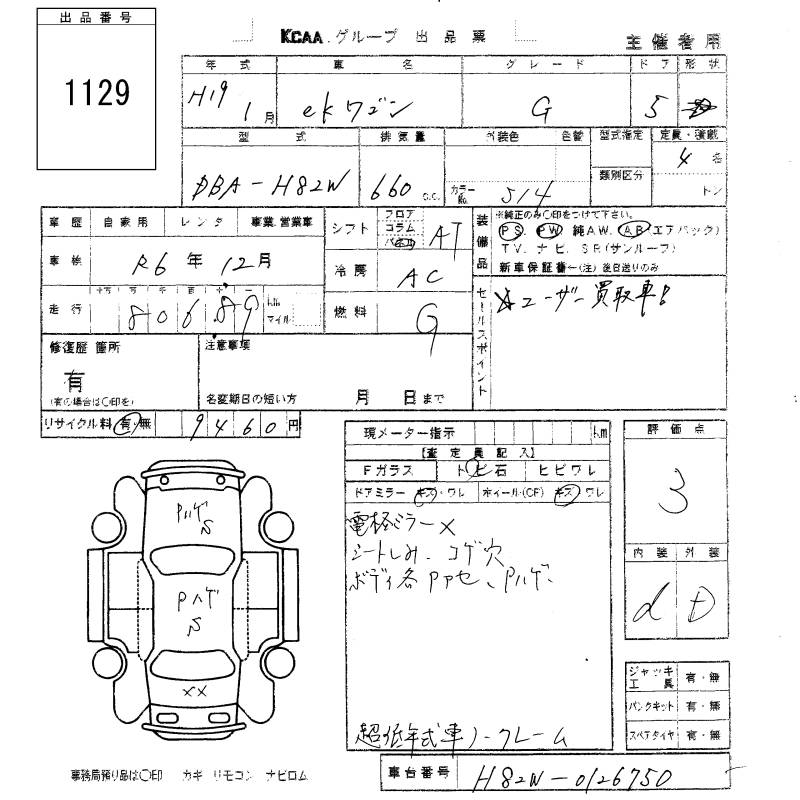 出品番号
1129
KCAA.グループ 出品票
主催者用
年式 車名 グレード ドア 形状
H19 1月 ekワゴン G 5
型式 排気量 外装色 色替 型式指定 定員・積載
DBA-H82W 660 c.c. カラーNo. 514 類別区分 4名 トン
車歴 自家用 レンタ 事業.営業車
シフト フロア コラム AT
装備品 ※純正のみ○印をつけて下さい。
PS PW 純AW. AB(エアバック)
TV. ナビ. SR(サンルーフ)
新車保証書←(注)後日送りのみ
車検 R6年12月
冷房 AC
走行 十万 万 千 百 十 一
80689 km マイル
燃料 G
セールスポイント
☆ユーザー買取車!
修復歴 箇所
有
(有の場合は○印を)
注意事項
名変期日の短い方 月 日まで
リサイクル料 有・無 9460円
現メーター指示 km
【査定員記入】
Fガラス トビ石 ヒビワレ
ドアミラー キズ・ワレ ホイール・(CF) キズ・ワレ
電格ミラー×
シートしみ、コゲ穴
ボディ各Pアセ、Pハゲ、
超低年式車ノークレーム
評価点
3
内装 外装
d D
Pハゲ
S
Pハゲ
S
××
ジャッキ工具 有・無
パンクキット 有・無
スペアタイヤ 有・無
事務局預り品は○印 カギ リモコン ナビロム
車台番号 H82W-0126750